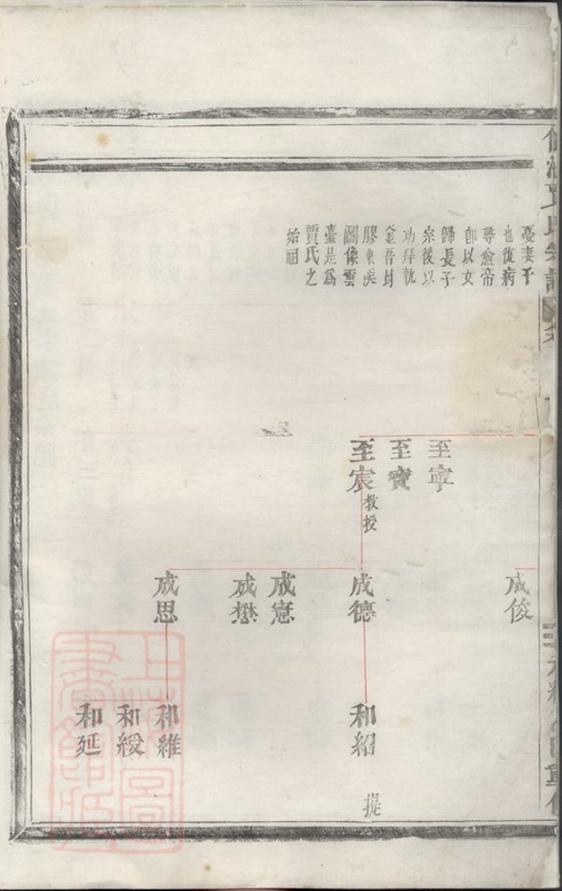 憂妻子
也復病
尋愈帝
即以女
歸長子
宗後以
功拜執
金吾封
膠東侯
圖像雲
臺是為
賈氏之
始祖
至寧
至寶
至宸教授
成俊
成德
成憲
成懋
成思
和紹
提
和維
和緩
和延